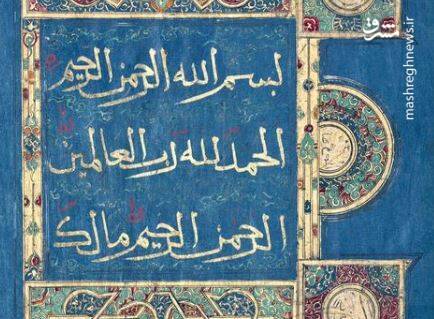 بسم الله الرحمن الرحيم
الحمد لله رب العالمين
الرحمن الرحيم مالك
مشرق
mashreghnews.ir